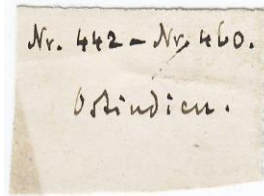 Nr. 442 - Nr. 460.
Ostindien.